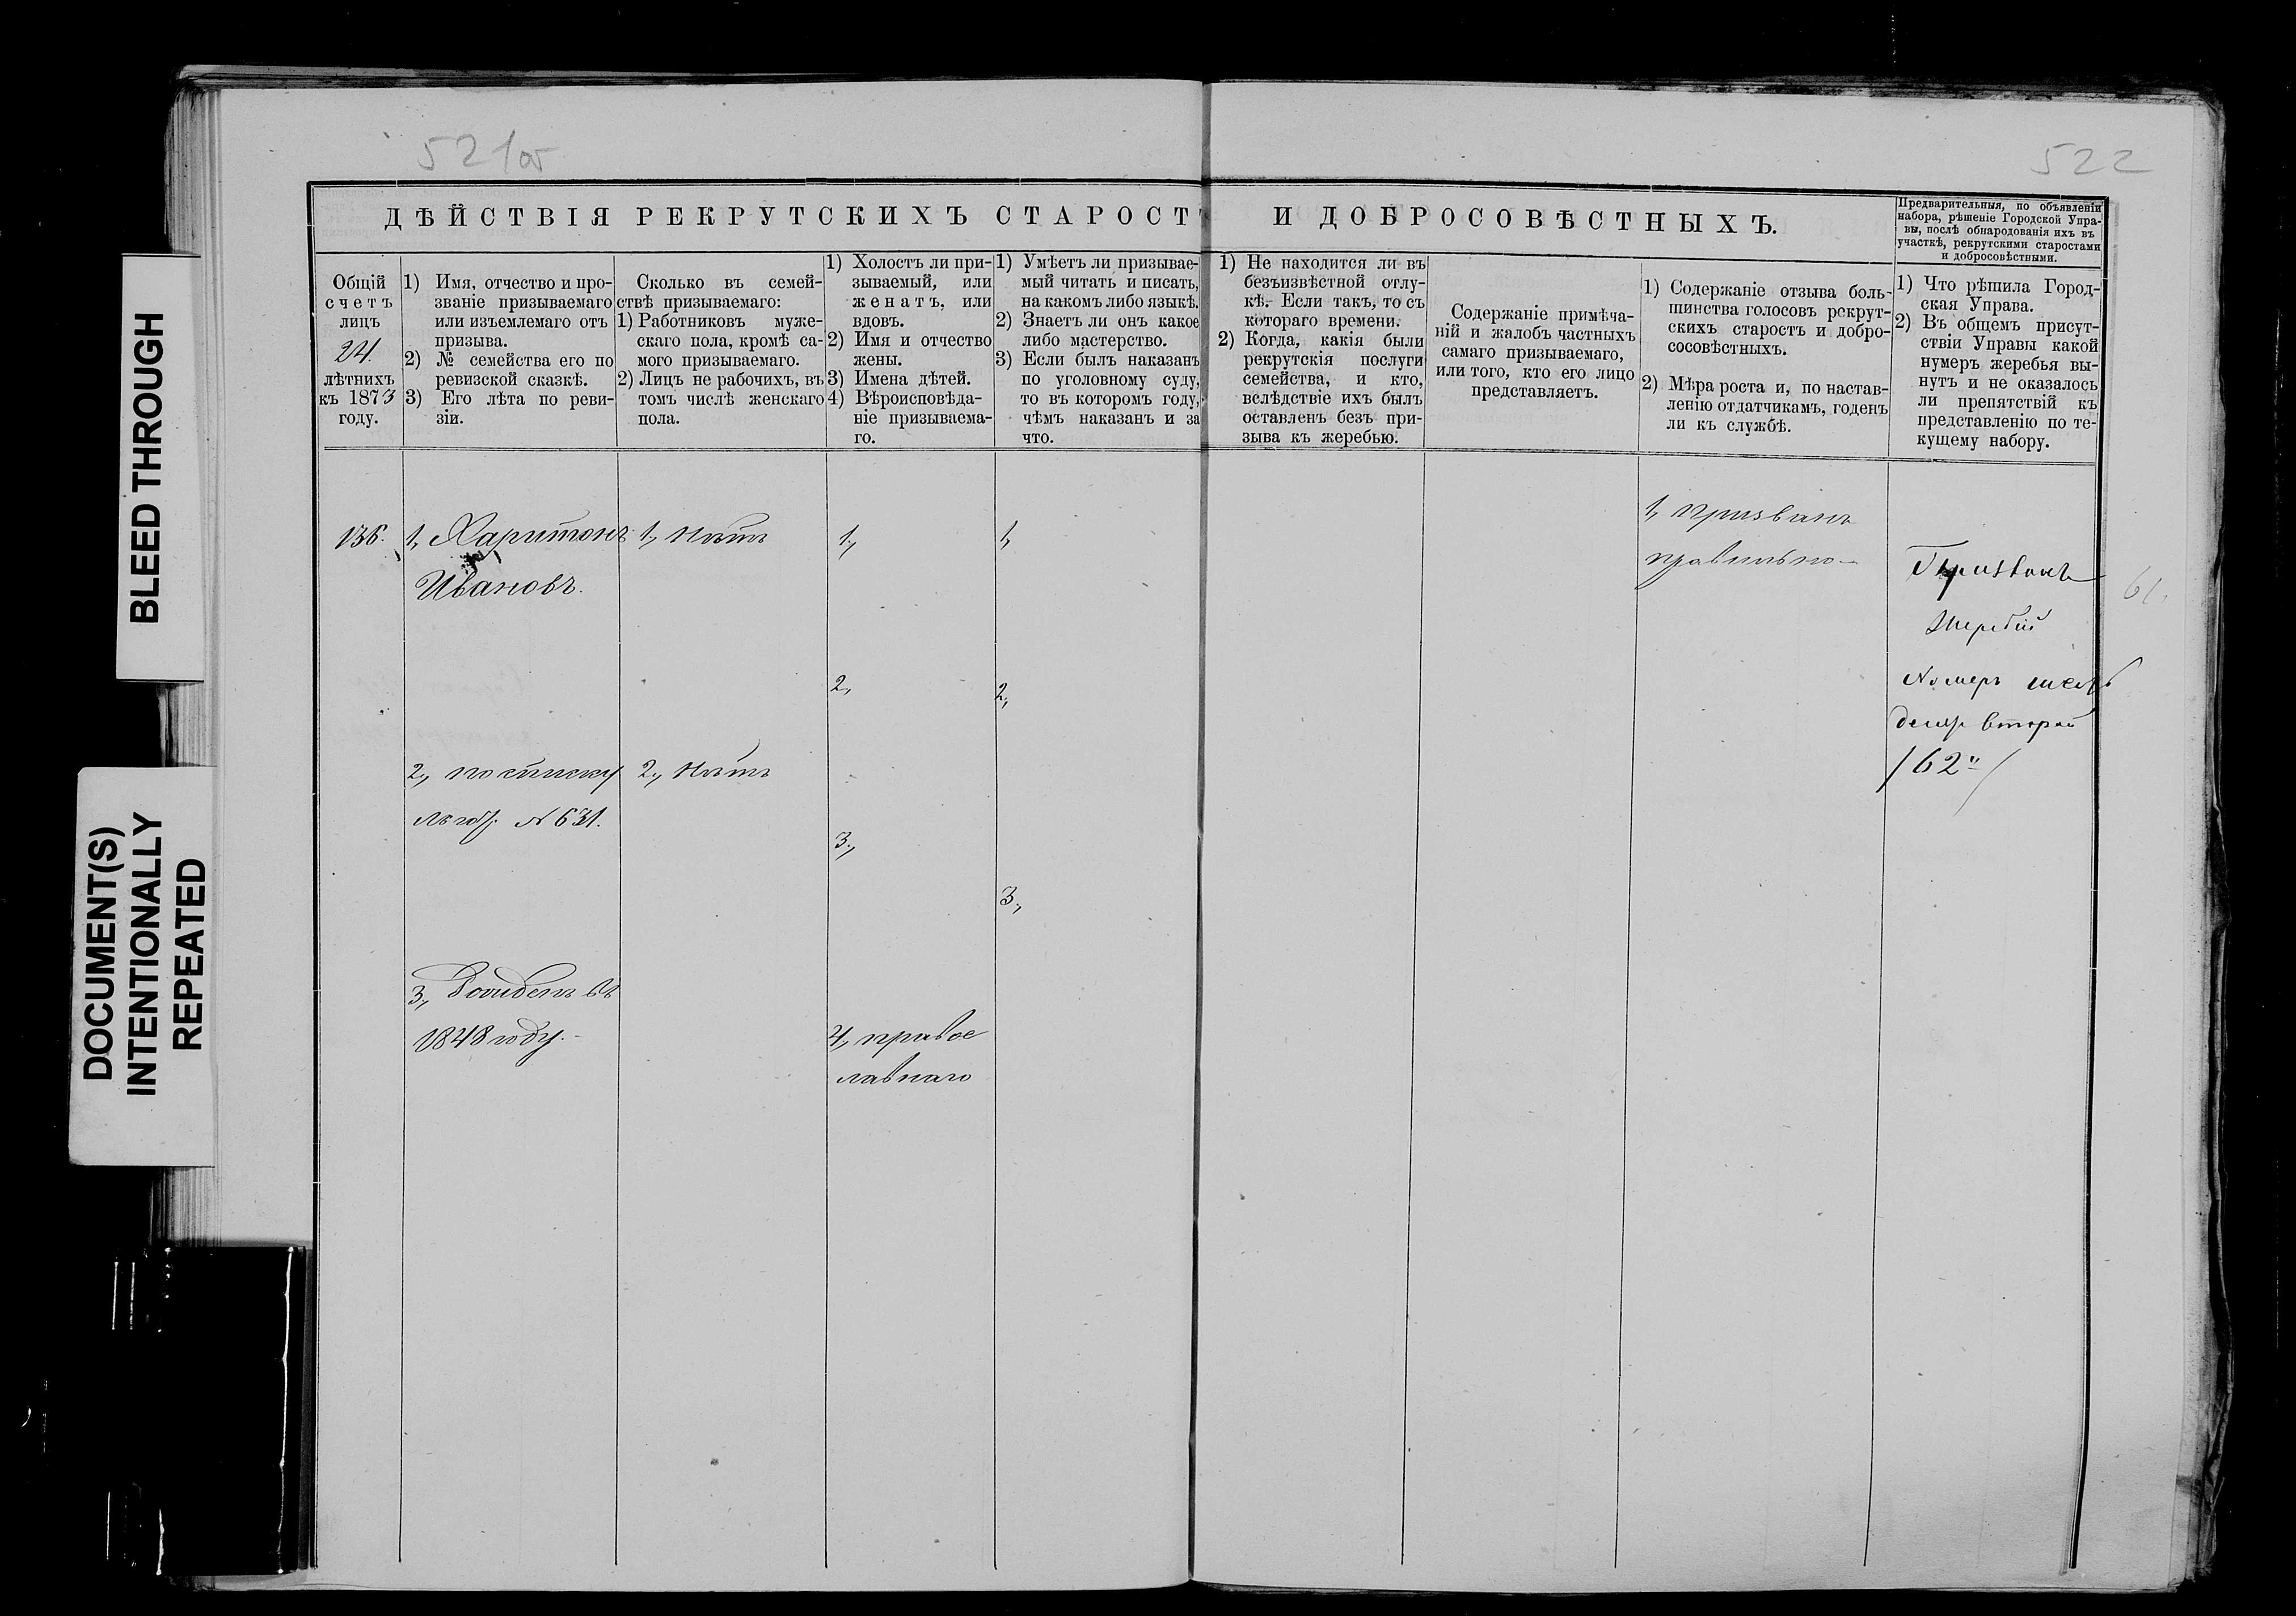 BLEED THROUGH
DOCUMENT(S)
INTENTIONALLY
REPEATED
521об
522
ДѢЙСТВІЯ РЕКРУТСКИХЪ СТАРОСТЪ И ДОБРОСОВѢСТНЫХЪ.
Предварительныя, по объявленіи
набора, рѣшеніе Городской Упра-
вы, послѣ обнародованія ихъ въ
участкѣ, рекрутскими старостами
и добросовѣстными.
Общій
счетъ
лицъ
24
лѣтнихъ
къ 1873
году.
1) Имя, отчество и про-
званіе призываемаго
или изъемлемаго отъ
призыва.
2) № семейства его по
ревизской сказкѣ.
3) Его лѣта по реви-
зіи.
Сколько въ семей-
ствѣ призываемаго:
1) Работниковъ муже-
скаго пола, кромѣ са-
мого призываемаго.
2) Лицъ не рабочихъ, въ
томъ числѣ женскаго
пола.
1) Холостъ ли при-
зываемый, или
женатъ, или
вдовъ.
2) Имя и отчество
жены.
3) Имена дѣтей.
4) Вѣроисповѣда-
ніе призываема-
го.
1) Умѣетъ ли призывае-
мый читать и писать,
на какомъ либо языкѣ.
2) Знаетъ ли онъ какое
либо мастерство.
3) Если былъ наказанъ
по уголовному суду,
то въ которомъ году,
чѣмъ наказанъ и за
что.
1) Не находится ли въ
безъизвѣстной отлу-
кѣ. Если такъ, то съ
котораго времени.
2) Когда, какія были
рекрутскія послуги
семейства, и кто,
вслѣдствіе ихъ былъ
оставленъ безъ при-
зыва къ жеребью.
Содержаніе примѣча-
ній и жалобъ частныхъ
самаго призываемаго,
или того, кто его лицо
представляетъ.
1) Содержаніе отзыва боль-
шинства голосовъ рекрут-
скихъ старостъ и добро-
сосовѣстныхъ.
2) Мѣра роста и, по настав-
ленію отдатчикамъ, годенъ
ли къ службѣ.
1) Что рѣшила Город-
ская Управа.
2) Въ общемъ присут-
ствіи Управы какой
нумеръ жеребья вы-
нутъ и не оказалось
ли препятствій къ
представленію по те-
кущему набору.
136.
1, Харитонъ
Ивановъ.
2, по списку
N 631.
3, Рожденъ въ
1848 году.
1, нѣтъ
2, нѣтъ
1,
2,
3,
4, правос
лавнаго
1,
2,
3,
1, призванъ
правильно
Призванъ
Жребій
Номеръ шесть
десят второй
/62й/
61.